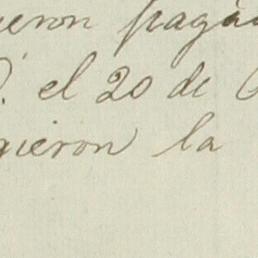 ieron paga
D. el 20 de
gieron la